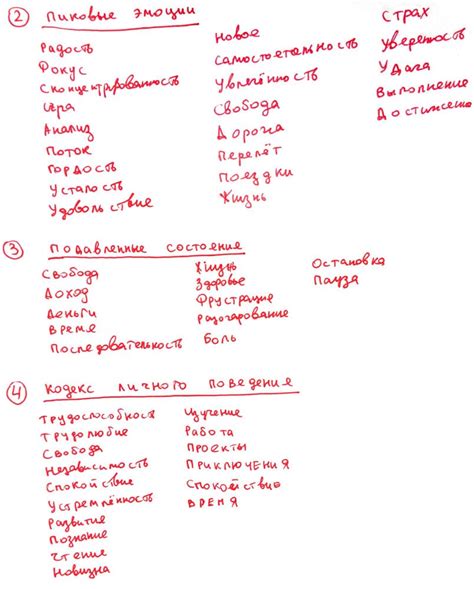 ② Пиковые эмоции
Радость
Фокус
Сконцентрированность
Игра
Анализ
Поток
Гордость
Усталость
Удовольствие
Новое
Самостоетельность
Увлечённость
Свобода
Дорога
Перелёт
Поездки
Жизнь
Страх
Уверенность
Удача
Выполнение
Достижение
③ Подавленные состоение
Свобода
Доход
Деньги
Время
Последовательность
Жизнь
Здоровье
Фрустрация
Разочарование
Боль
Остановка
Пауза
④ Кодекс личного поведение
Трудоспособност
Трудолюбие
Свобода
Независимость
Спокойствие
Устремлённость
Развитие
Познание
Чтение
Новизна
Изучение
Работа
Проекты
Приключения
Спокойствие
Время